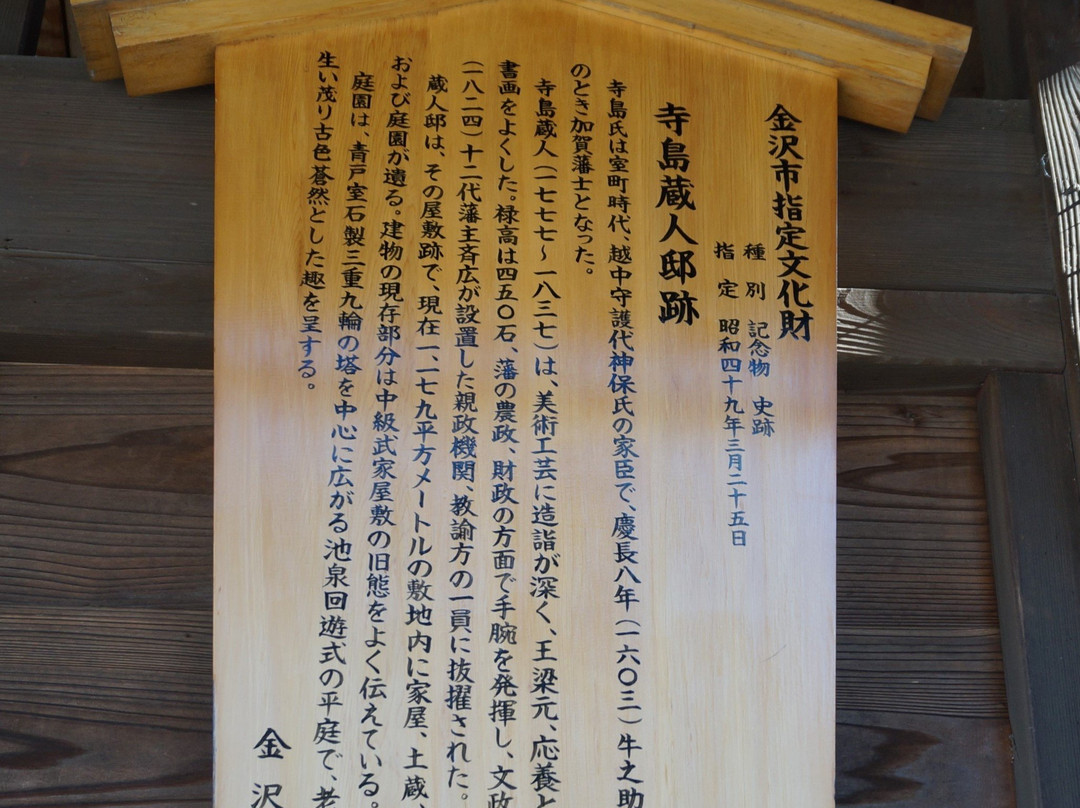 金沢市指定文化財
種別 記念物 史跡
指定 昭和四十九年三月二十五日
寺島蔵人邸跡
寺島氏は室町時代、越中守護代神保氏の家臣で、慶長八年(一六〇三)牛之助
のとき加賀藩士となった。
寺島蔵人(一七七七〜一八三七)は、美術工芸に造詣が深く、王梁元、応養と
書画をよくした。禄高は四五〇石、藩の農政、財政の方面で手腕を発揮し、文政
(一八二四)十二代藩主斉広が設置した親政機関、教諭方の一員に抜擢された。
蔵人邸は、その屋敷跡で、現在一、一七九平方メートルの敷地内に家屋、土蔵、
および庭園が遺る。建物の現存部分は中級武家屋敷の旧態をよく伝えている。
庭園は、青戸室石製三重九輪の塔を中心に広がる池泉回遊式の平庭で、老
生い茂り古色蒼然とした趣を呈する。
金沢